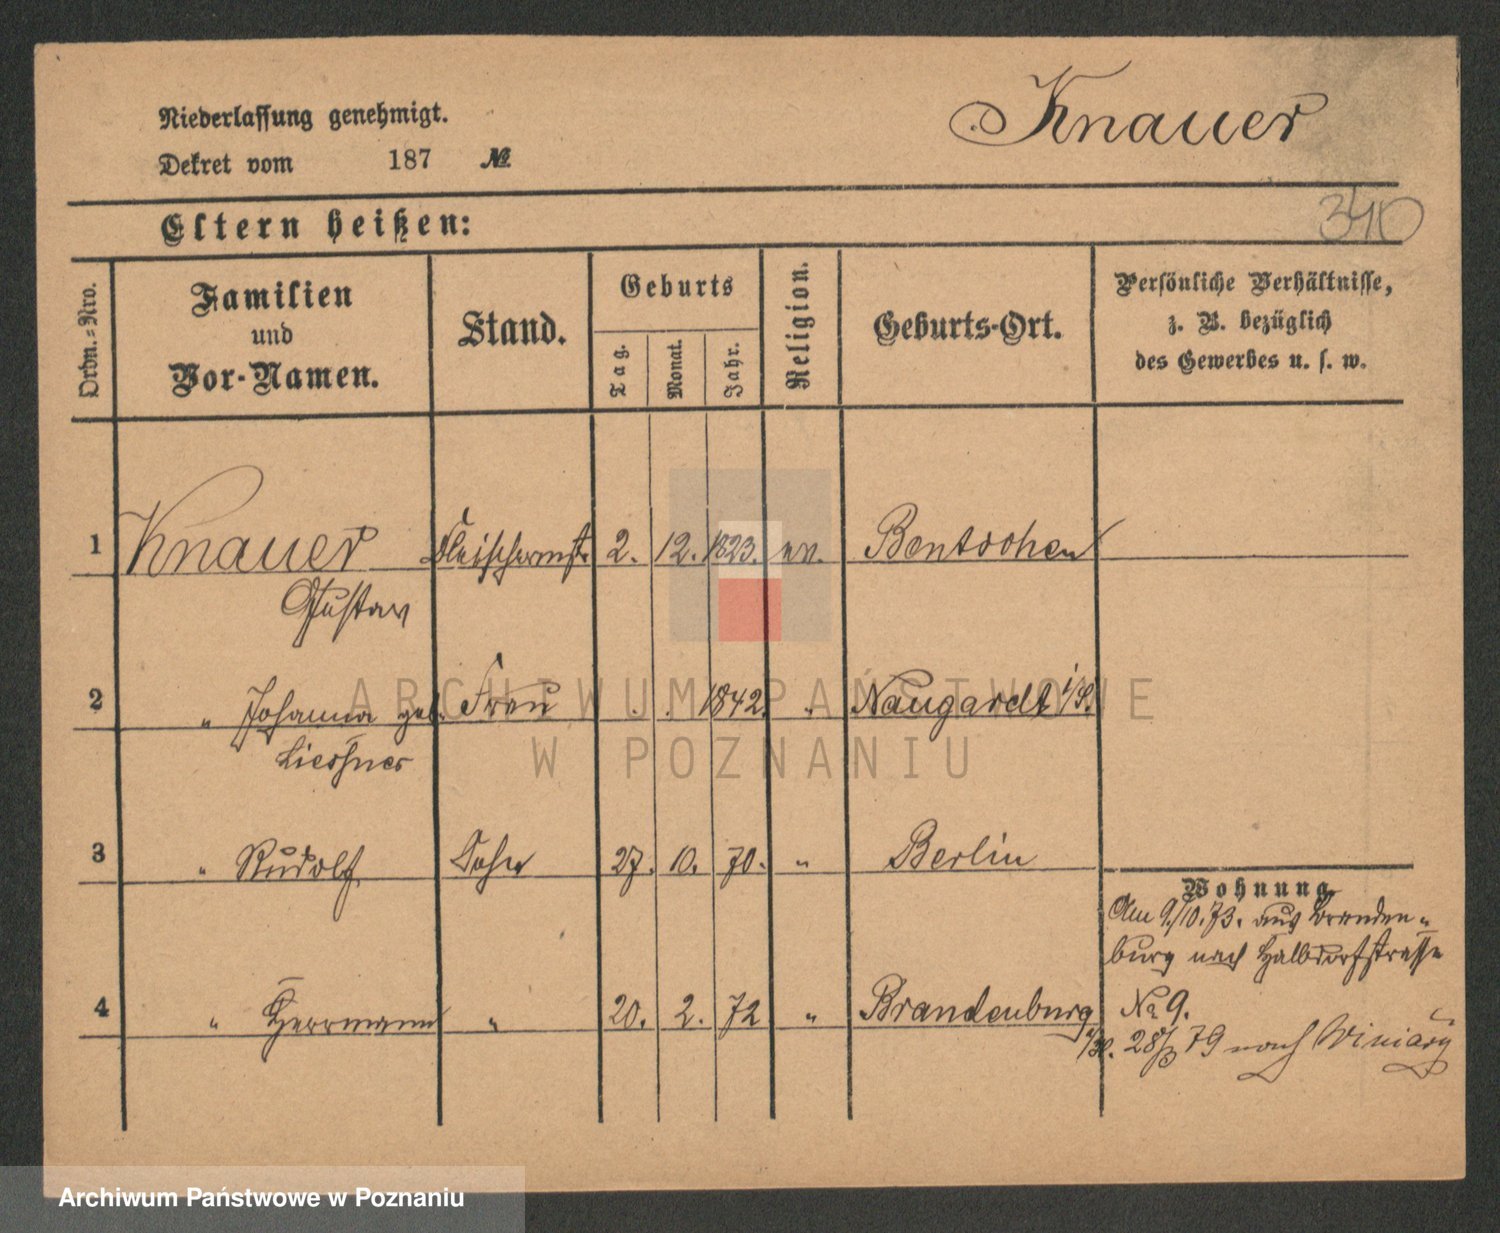 Niederlassung genehmigt.
Knauer
Dekret vom 187 №
340
Eltern heißen:
Ordn.-Nro.
Familien und Vor-Namen.
Stand.
Geburts
Tag.
Monat.
Jahr.
Religion.
Geburts-Ort.
Persönliche Verhältnisse,
z. B. bezüglich
des Gewerbes u. s. w.
1 Knauer Fleischermstr 2. 12. 1823. ev. Bentschen
Gustav
2 " Johanna geb. Frau . . 1842. " Naugardt
Liessner
3 " Rudolf Sohn 27. 10. 70. " Berlin
Wohnung
Am 9./10.73. aus Branden-
burg nach Halbdorfstrasse
4 " Herrmann " 20. 2. 72 " Brandenburg No 9.
a/H. 28/3 79 nach Winiary
ARCHIWUM PAŃSTWOWE
W POZNANIU
Archiwum Państwowe w Poznaniu